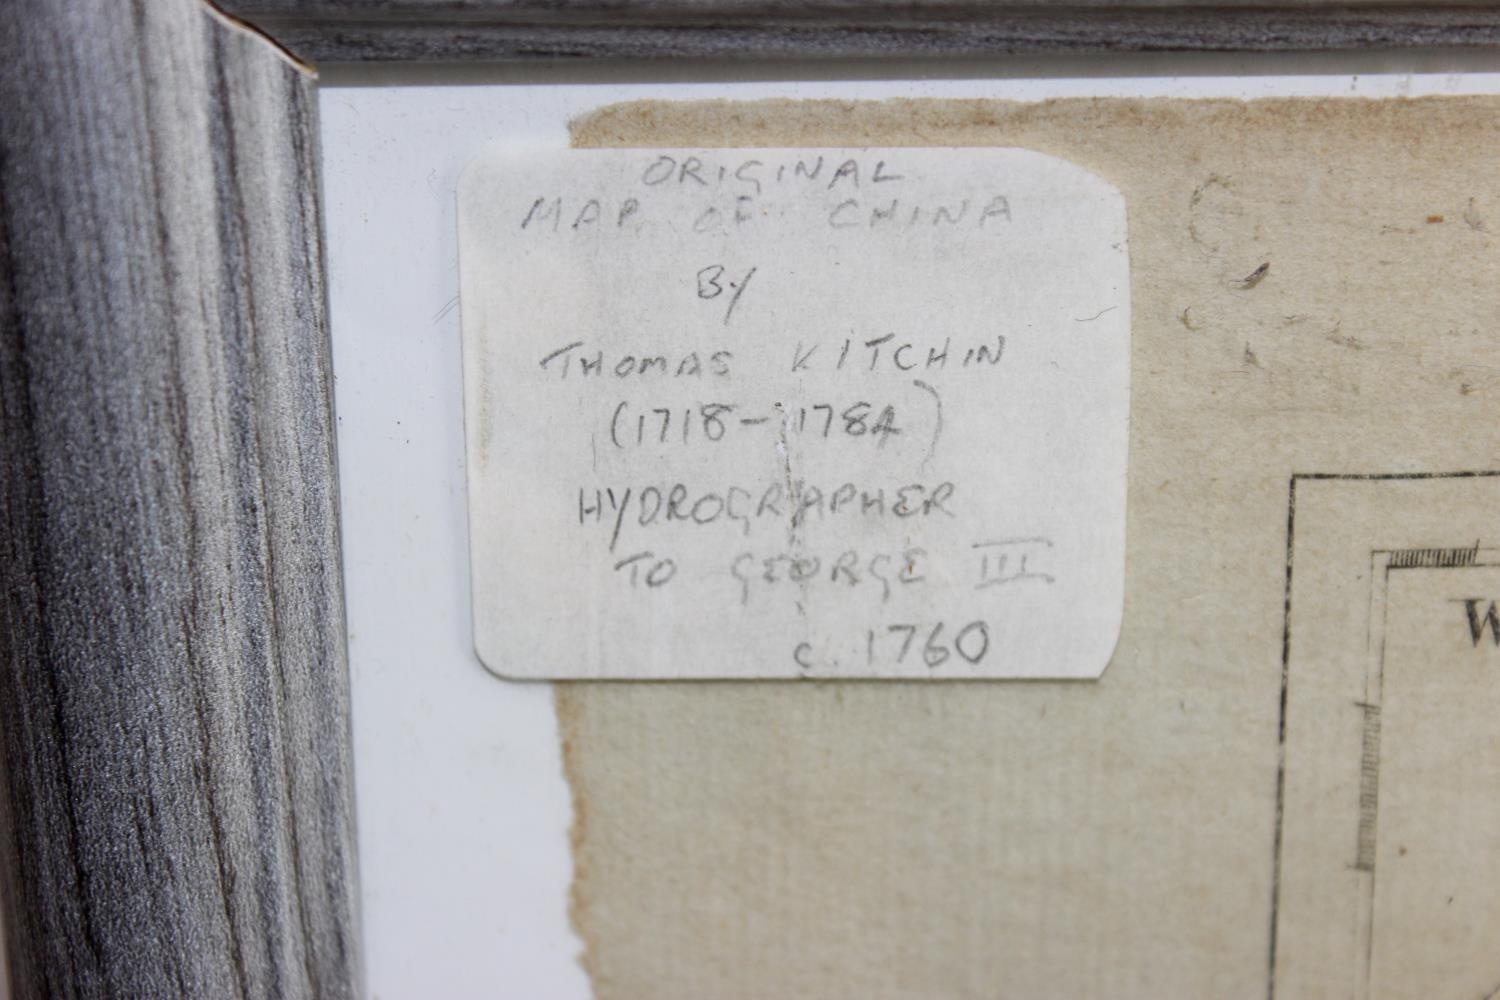 ORIGINAL
MAP OF CHINA
By
THOMAS KITCHIN
(1718-1784)
HYDROGRAPHER
TO GEORGE III
c. 1760
W